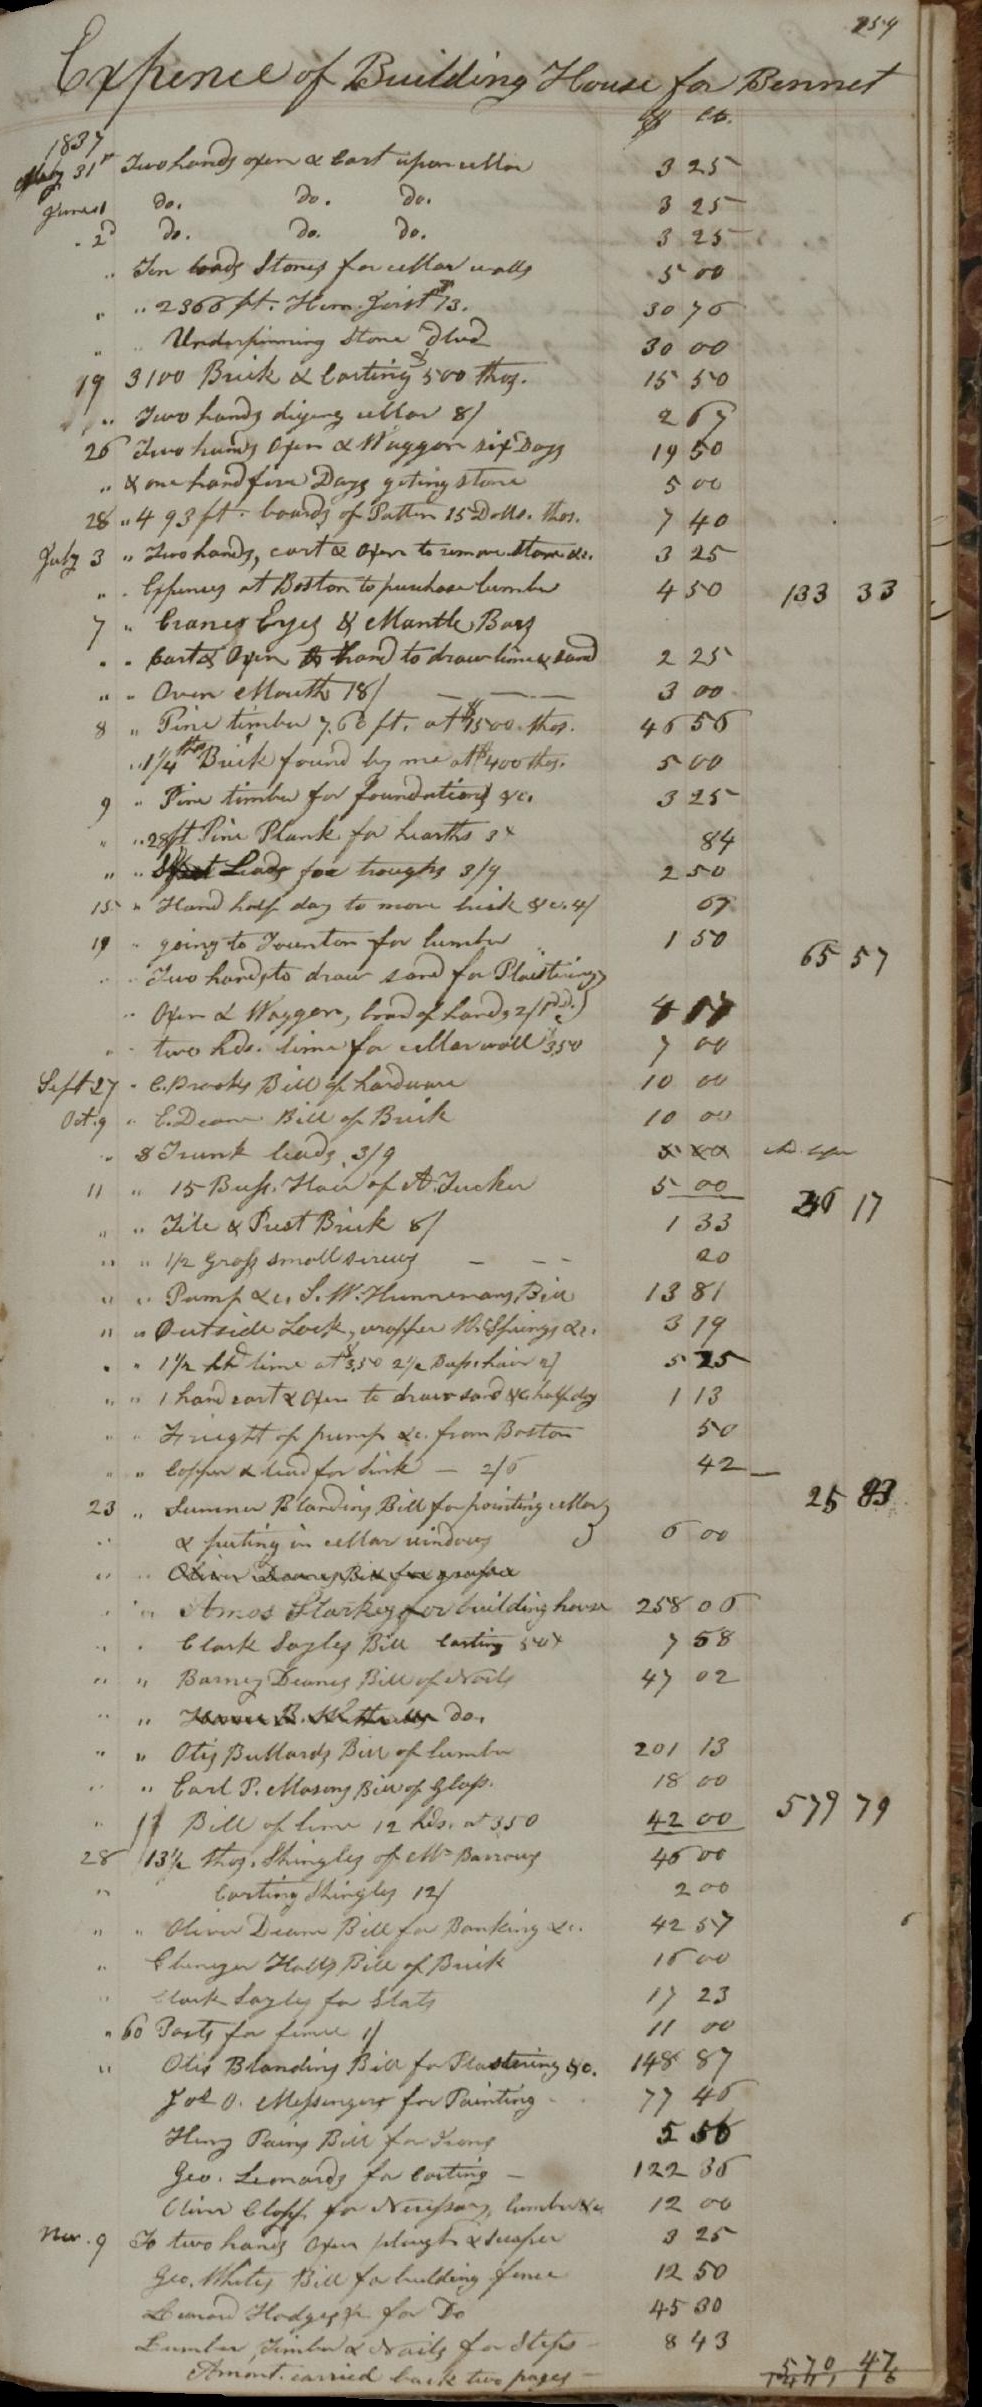 254
Expence of Building House for Bennet
$ cts.
1837
May 31st Two hands oxen & Cart upon cellar 3 25
June 1 do. do. do. 3 25
" 2d do. do. do. 3 25
" Ten loads Stones for cellar walls 5 00
" " 2366 ft. Hem. Joist $13. 30 76
" " Underpinning Stone dlvd 30 00
19 3100 Brick & Carting $500 thos. 15 50
" Two hands diging cellar 8/ 2 67
26 Two hands Oxen & Waggon six Days 19 50
" & one hand five Days geting stone 5 00
28 " 493 ft. boards of Patten 15 Dolls. thos. 7 40
July 3 " Two hands, cart & Oxen to remove stone &c. 3 25
" " Expences at Boston to purchase lumber 4 50 133 33
7 " Cranes Eyes & Mantle Bars
" " Cart & Oxen & hand to draw lime & sand 2 25
" " Oven Mouth 18/ 3 00
8 " Pine timber 7.60 ft. at $1500. thos. 46 56
" 1 1/4 thos Brick found by me at $400 thos. 5 00
9 " Pine timber for foundations &c. 3 25
" " 28 ft Pine Plank for hearths 3x 84
" " Leads for troughs 3/9 2 50
15 " Hand half day to move brick &c. 4/ 67
19 " going to Taunton for lumber 1 50 65 57
" " Two hands to draw sand for Plaistering
" " Oxen & Waggon, load of hands 2/ 4 17
" two hds. lime for cellar wall $3,50 7 00
Sept 27 " C. Brooks Bill of hardware 10 00
Oct. 9 " E. Deane Bill of Brick 10 00
" 8 Trunk leads 3/9 x xx
11 " 15 Bush. Hair of A. Tucker 5 00 36 17
" " Tile & Prest Brick 8/ 1 33
" " 1/2 Gross small screws 20
" " Pump &c. S. W. Hunnemans Bill 13 81
" " Outside Lock, Springs &c. 3 19
" " 1 1/2 hhd lime at $3.50 2 1/2 Bush. hair 2/ 5 25
" " 1 hand cart & Oxen to draw sand &c. half day 1 13
" " Freight of pump &c. from Boston 50
" " Copper & lead for Sink — 2/6 42 25 83
23 " Sumner Blandins Bill for pointing cellar
" & puting in cellar windows 6 00
" "
" " Amos Starkey for building house 258 06
" " Clark Sayles Bill Carting 50x 7 58
" " Barney Deanes Bill of Nails 47 02
" " do.
" " Otis Bullards Bill of lumber 201 13
" " Earl P. Masons Bill of Glass. 18 00
" Bill of lime 12 hds. at 3.50 42 00 579 79
28 13 1/2 thos. Shingles of Mr Barrows 46 00
" Carting Shingles 12/ 2 00
" " Oliver Deane Bill for Banking &c. 42 57
" Ebenezer Halls Bill of Brick 16 00
" Clark Sayles for Slats 17 23
" 60 Posts for fence 1/ 11 00
" Otis Blandins Bill for Plastering &c. 148 87
Jos O. Messengers for Painting 77 46
Henry Pains Bill for Irons 5 56
Geo. Leonards for Carting — 122 36
Oliver Clapp for Necessary, lumber &c 12 00
Nov. 9 To two hands Oxen plough & scraper 3 25
Geo. Whites Bill for building fence 12 50
Leonard Hodges for Do 45 30
Lumber, Timber & Nails for Steps — 8 43
Amont. carried back two pages — 570 47